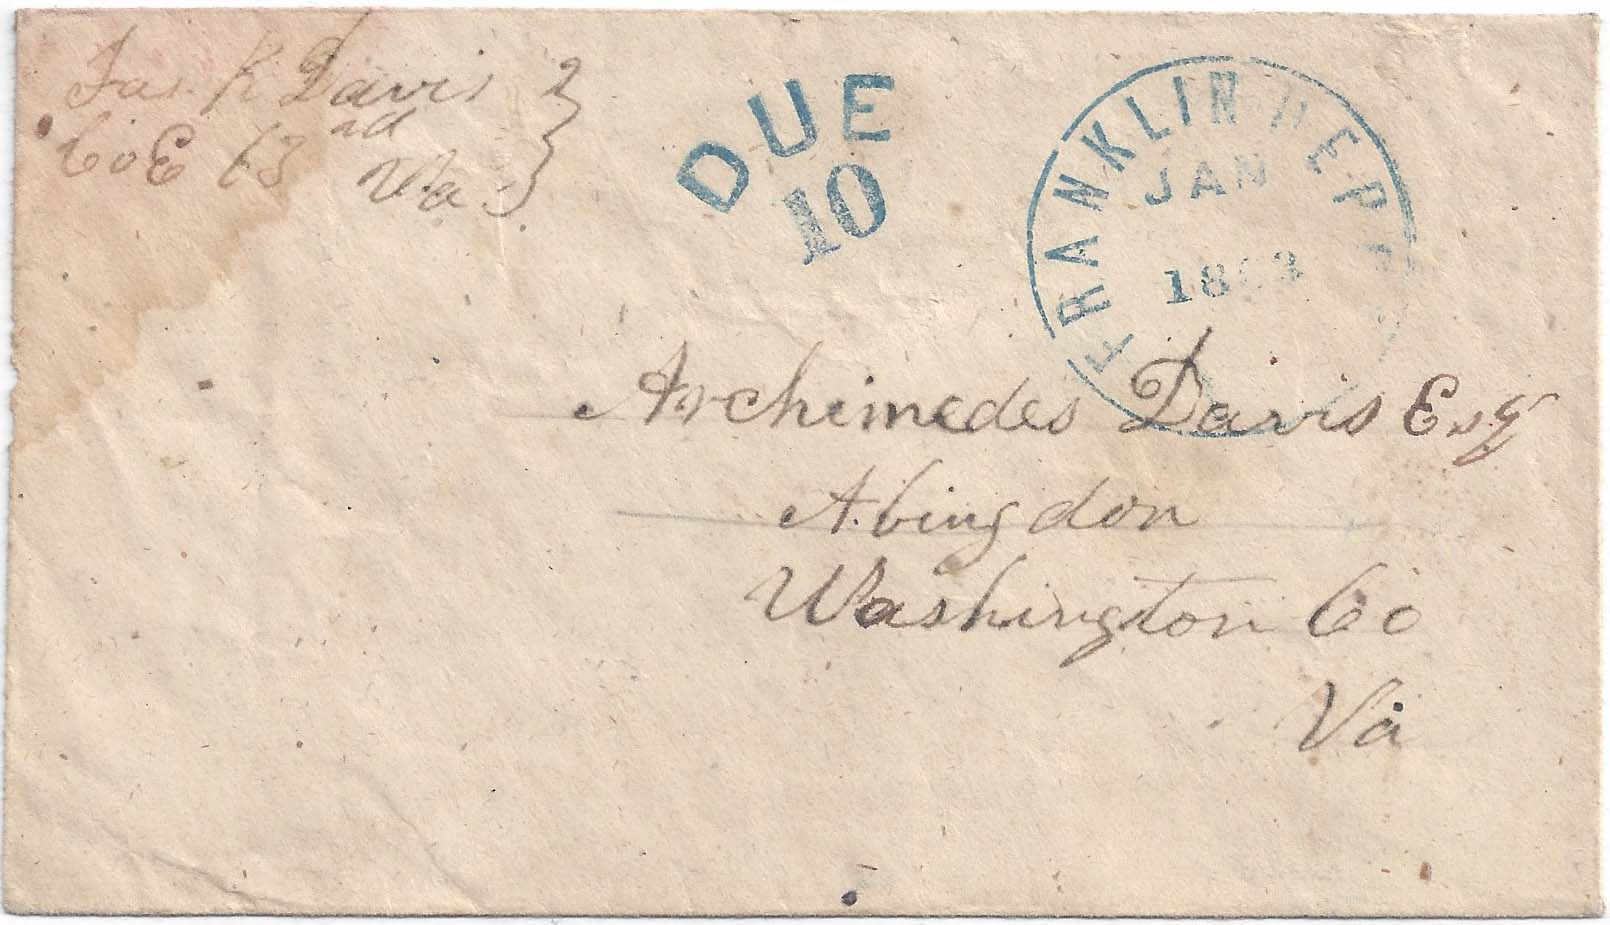 Jas. K Davis
Co E 63nd Va
DUE
10
FRANKLIN DEP
JAN
1863
Archimedes Davis Esq
Abingdon
Washington Co
Va